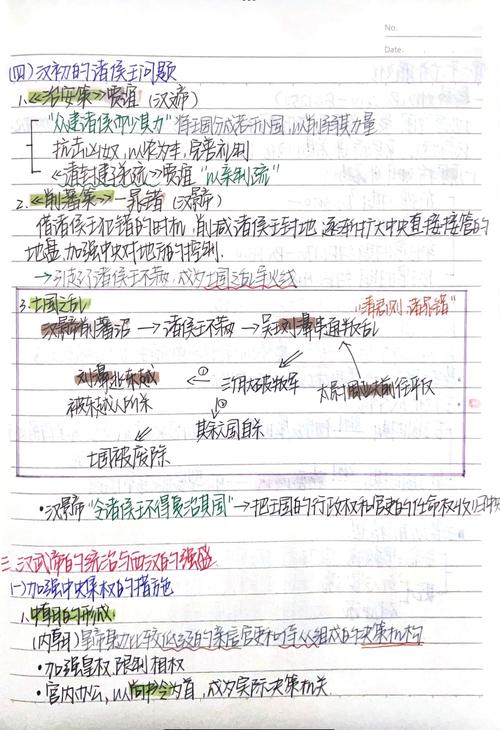 No.
Date.
(四)汉初的诸侯王问题
1.《治安策》贾谊(汉文帝)
"众建诸侯而少其力" 将王国分成若干小国,以削弱其力量
抗击匈奴,以农为本,完善礼制
《请封建子弟疏》贾谊 "以亲制疏"
2.《削藩策》—晁错(汉景帝)
借诸侯王犯错的时机,削减诸侯王封地,逐渐扩大中央直接接管的
地盘,加强中央对地方的控制
→引起了诸侯王不满,成为七国之乱导火线
3.七国之乱 "清君侧,诛晁错"
汉景帝削藩诏→诸侯王不满→吴王刘濞串通叛乱
刘濞逃东越 ← ① 三月大破叛军 太尉周亚夫前往平叛
被东越人所杀 ②
其余六国自杀
七国被废除
•汉景帝"令诸侯王不得复治其国"→把王国的行政权和官吏的任命权收归中央
三.汉武帝的统治与西汉的强盛
(一)加强中央集权的措施
1.中朝的形成
(内朝)皇帝集功比较低级的亲近官吏和侍从组成的决策机构
•加强皇权,限制相权
•宫内办公,以尚书令为首,成为实际决策机关